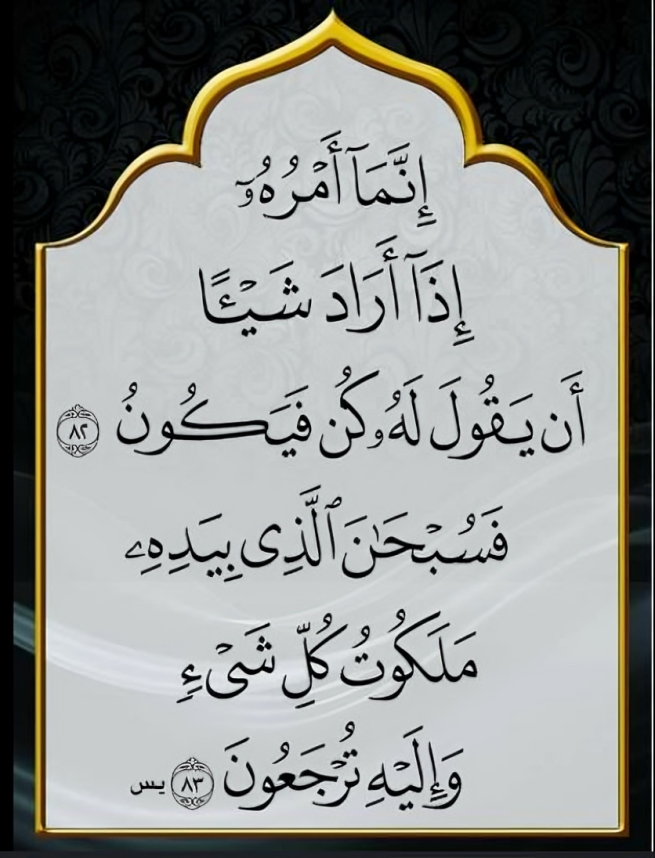 إِنَّمَآ أَمْرُهُۥٓ
إِذَآ أَرَادَ شَيْـًٔا
أَن يَقُولَ لَهُۥ كُن فَيَكُونُ ٨٢
فَسُبْحَـٰنَ ٱلَّذِى بِيَدِهِۦ
مَلَكُوتُ كُلِّ شَىْءٍ
وَإِلَيْهِ تُرْجَعُونَ ٨٣ يس